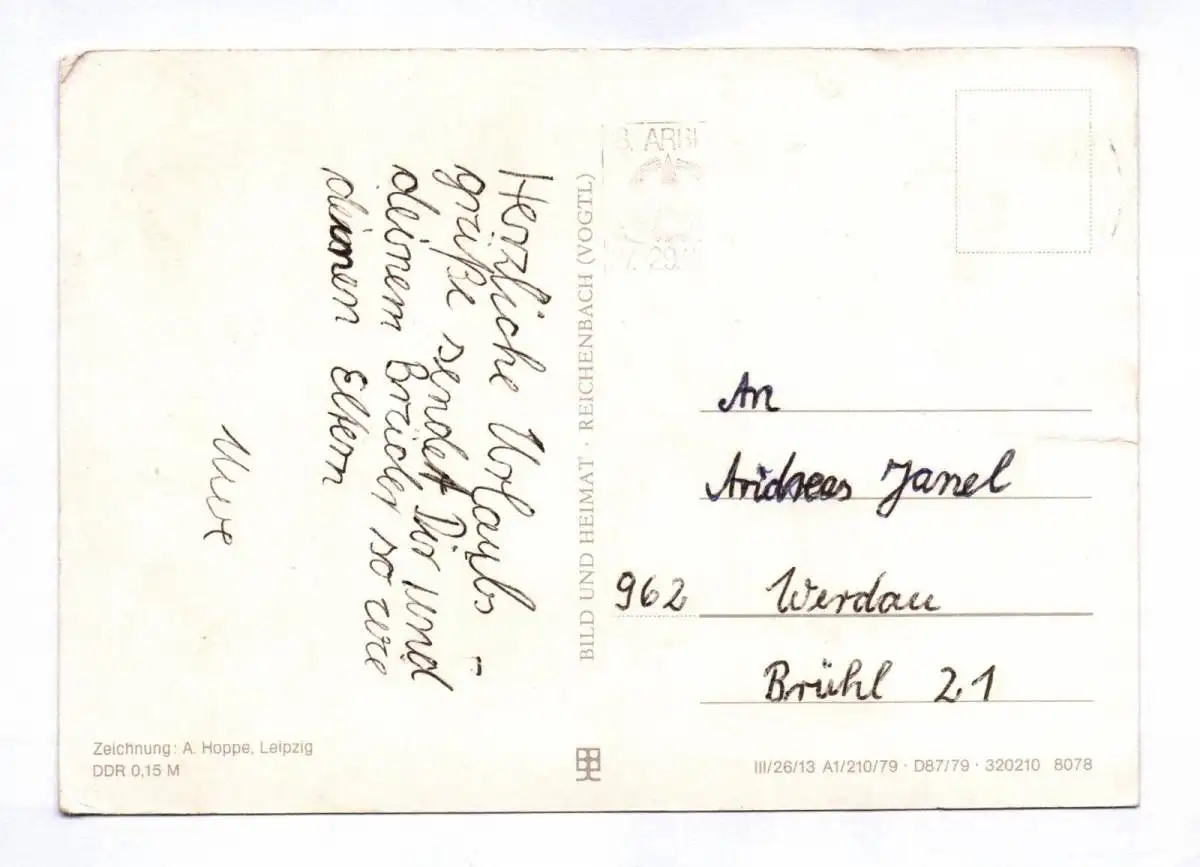 Herzliche Urlaubs
grüße sendet Dir und
deinem Bruder so wie
deinen Eltern
Uwe
BILD UND HEIMAT · REICHENBACH (VOGTL)
ARBE
29.
An
Andreas Janel
962 Werdau
Brühl 21
Zeichnung: A. Hoppe, Leipzig
DDR 0,15 M
III/26/13 A1/210/79 · D87/79 · 320210 8078